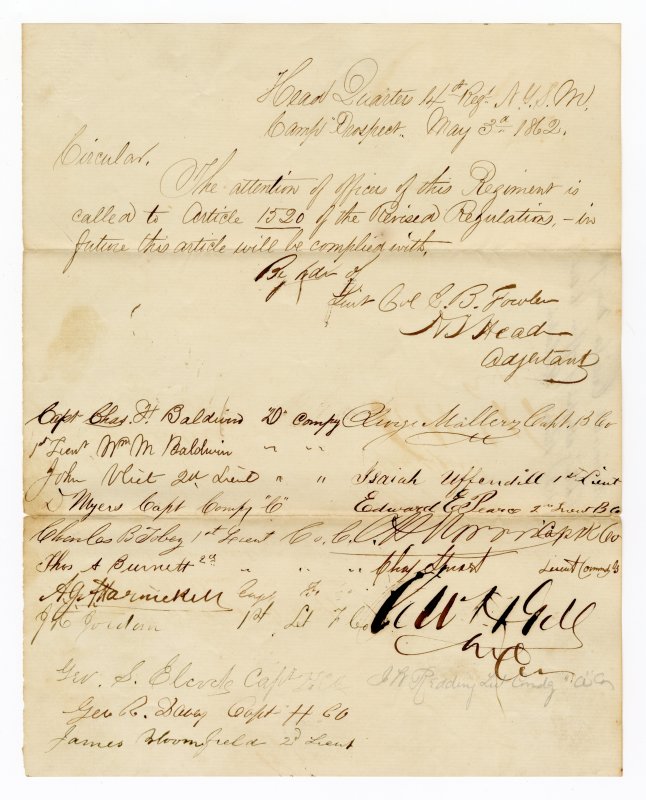 Head Quarters 14th Regt. N.Y.S.M.
Camp Prospect. May 3d 1862.
Circular.
The attention of officers of this Regiment is
called to Article 1520 of the Revised Regulations, - in
future this article will be complied with.
By order of
Lieut Col E. B. Fowler
Head
Adjertant
Capt Chas. H. Baldwin "D" compy George Mallery Capt. B Co
1st Lieut Wm M Baldwin " "
John Vliet 2d Lieut " " Isaiah Uffendill 1st Lieut
D Myers Capt Compy "C" Edward E Pearce 2nd Lieut B Co
Charles B Tobey 1st Lieut Co. C. Capt K Co
Thos A Burnett 2d " " " Chas Stuart Lieut Commdg
A. G. A.
J. H. Jordan 1st Lt F Co
Geo. S. Elcock Capt
J R Redding Lieut Comdg "A" Co
Geo R. Davey Capt H Co
James Bloomfield 2d Lieut